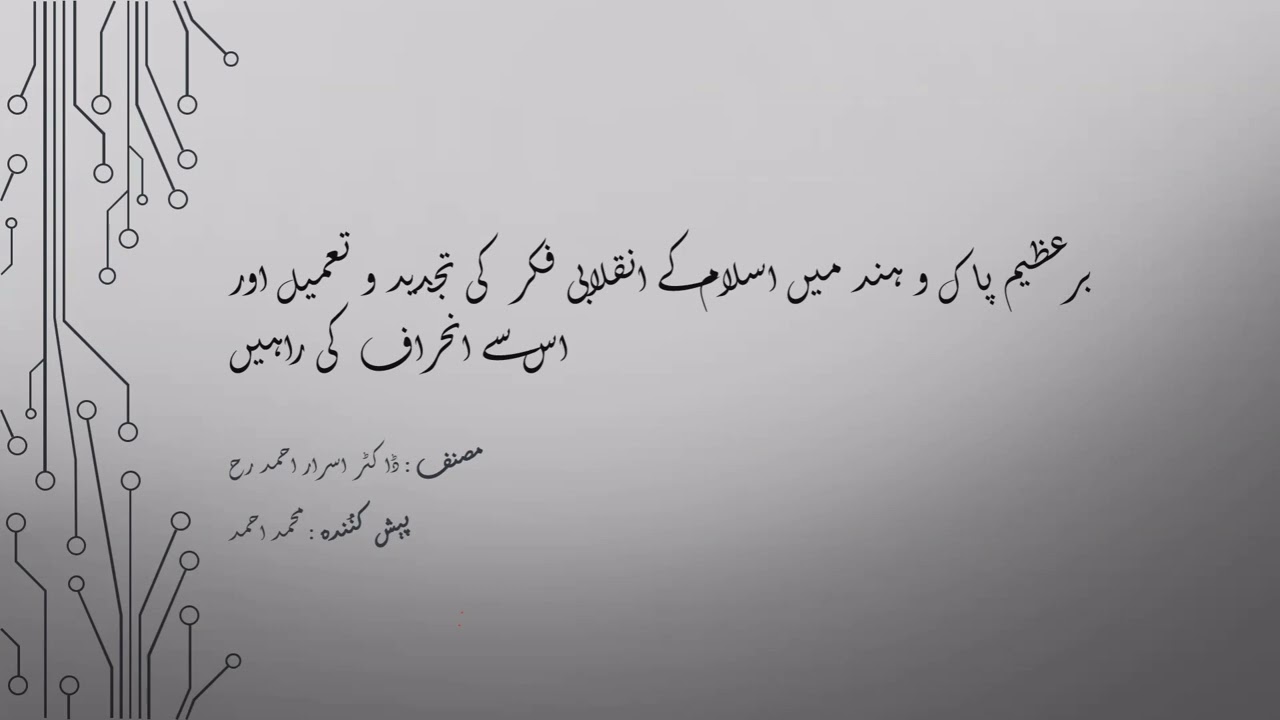 برعظیم پاک و ہند میں اسلام کے انقلابی فکر کی تجدید و تعمیل اور
اس سے انحراف کی راہیں
مصنف : ڈاکٹر اسرار احمد رح
پیش کنُندہ : محمد احمد